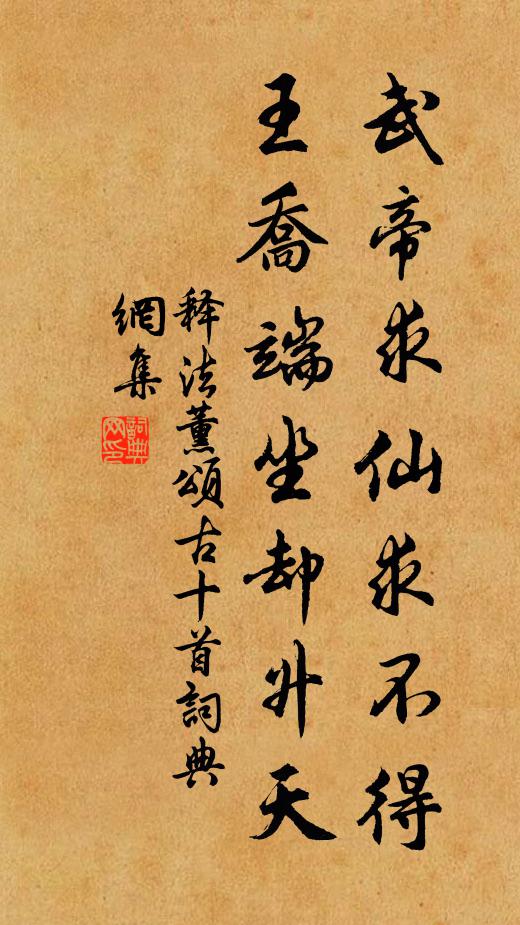 武帝求仙求不得
王喬端坐却升天
释法薰頌古十首詞典
網集
詞典
网印